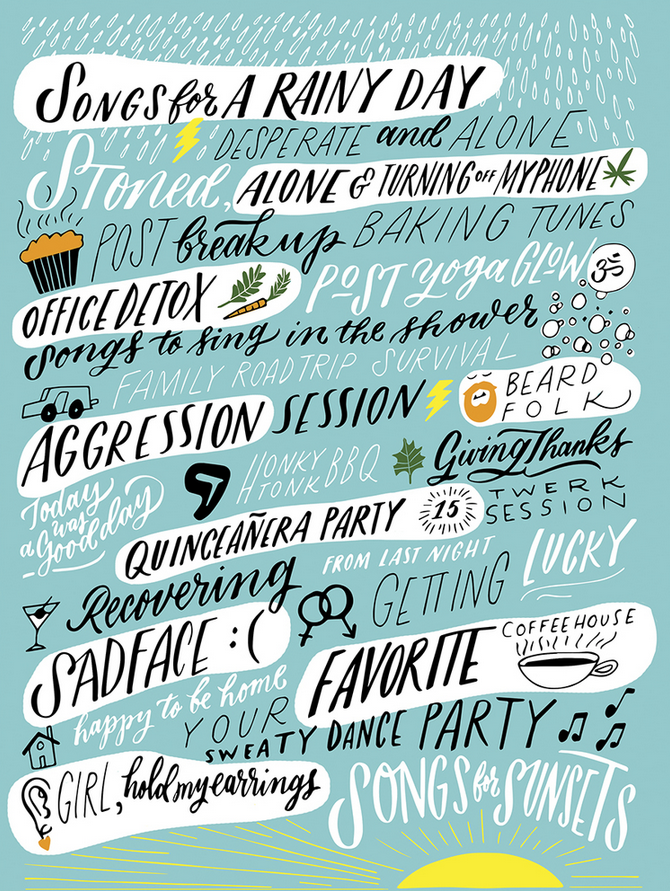 SONGS for A RAINY DAY
DESPERATE and ALONE
Stoned, ALONE & TURNING OFF MY PHONE
POST breakup BAKING TUNES
OFFICE DETOX
POST yoga GLOW ॐ
songs to sing in the shower
FAMILY ROADTRIP SURVIVAL
AGGRESSION SESSION
BEARD
FOLK
HONKY
TONK BBQ
Giving Thanks
Today
was
a Good day
TWERK
SESSION
QUINCEAÑERA PARTY 15
Recovering FROM LAST NIGHT
GETTING LUCKY
SADFACE :(
FAVORITE COFFEEHOUSE
happy to be home
YOUR
SWEATY DANCE PARTY
GIRL, hold my earrings
SONGS for SUNSETS